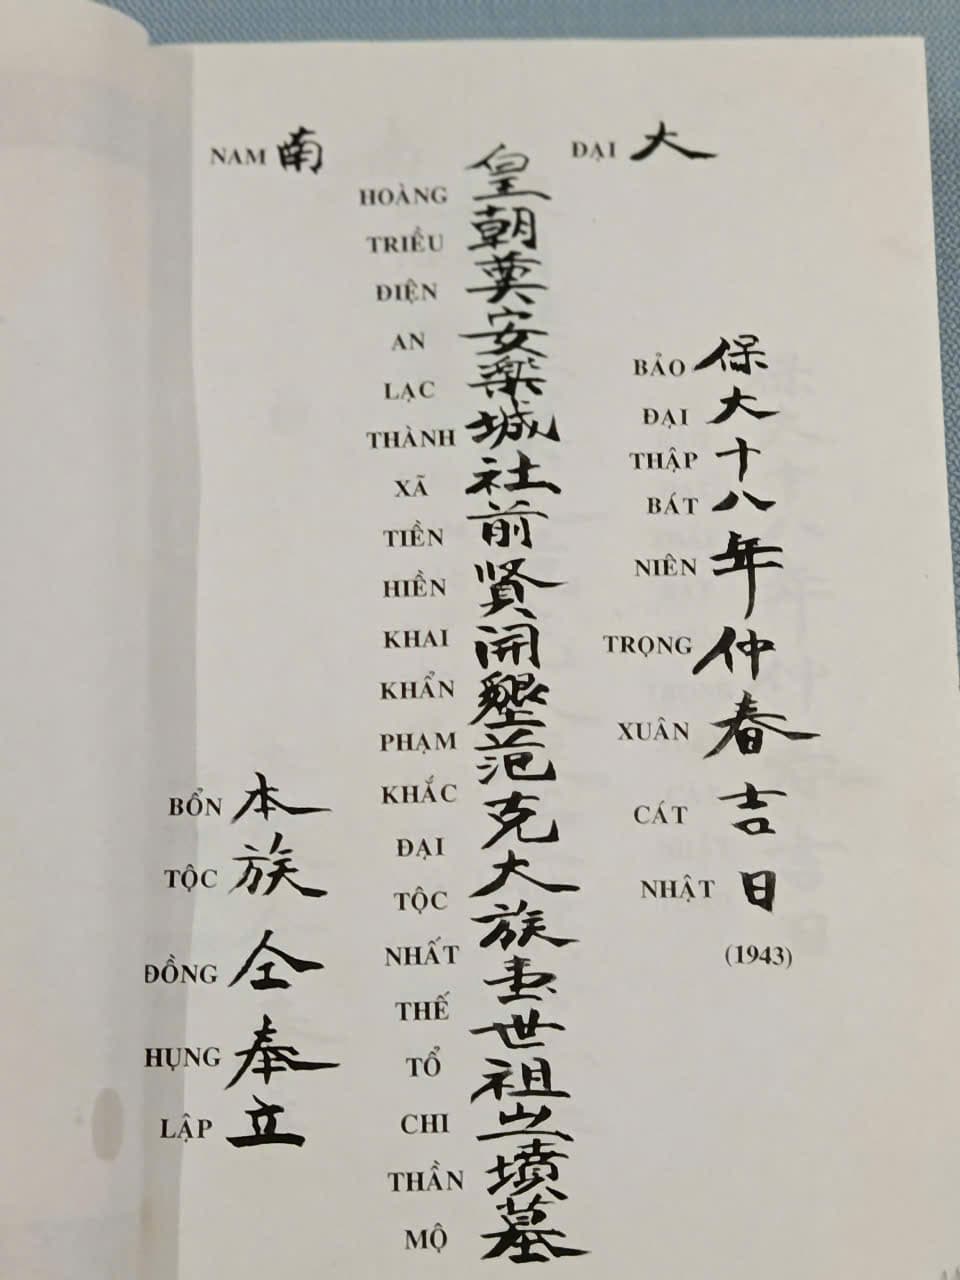 ĐẠI 大
NAM 南
BẢO 保
ĐẠI 大
THẬP 十
BÁT 八
NIÊN 年
TRỌNG 仲
XUÂN 春
CÁT 吉
NHẬT 日
(1943)
HOÀNG 皇
TRIỀU 朝
ĐIỆN 奠
AN 安
LẠC 楽
THÀNH 城
XÃ 社
TIỀN 前
HIỀN 賢
KHAI 開
KHẨN 墾
PHẠM 范
KHẮC 克
ĐẠI 大
TỘC 族
NHẤT 壹
THẾ 世
TỔ 祖
CHI 之
THẦN 墳
MỘ 墓
BỔN 本
TỘC 族
ĐỒNG 仝
HỤNG 奉
LẬP 立